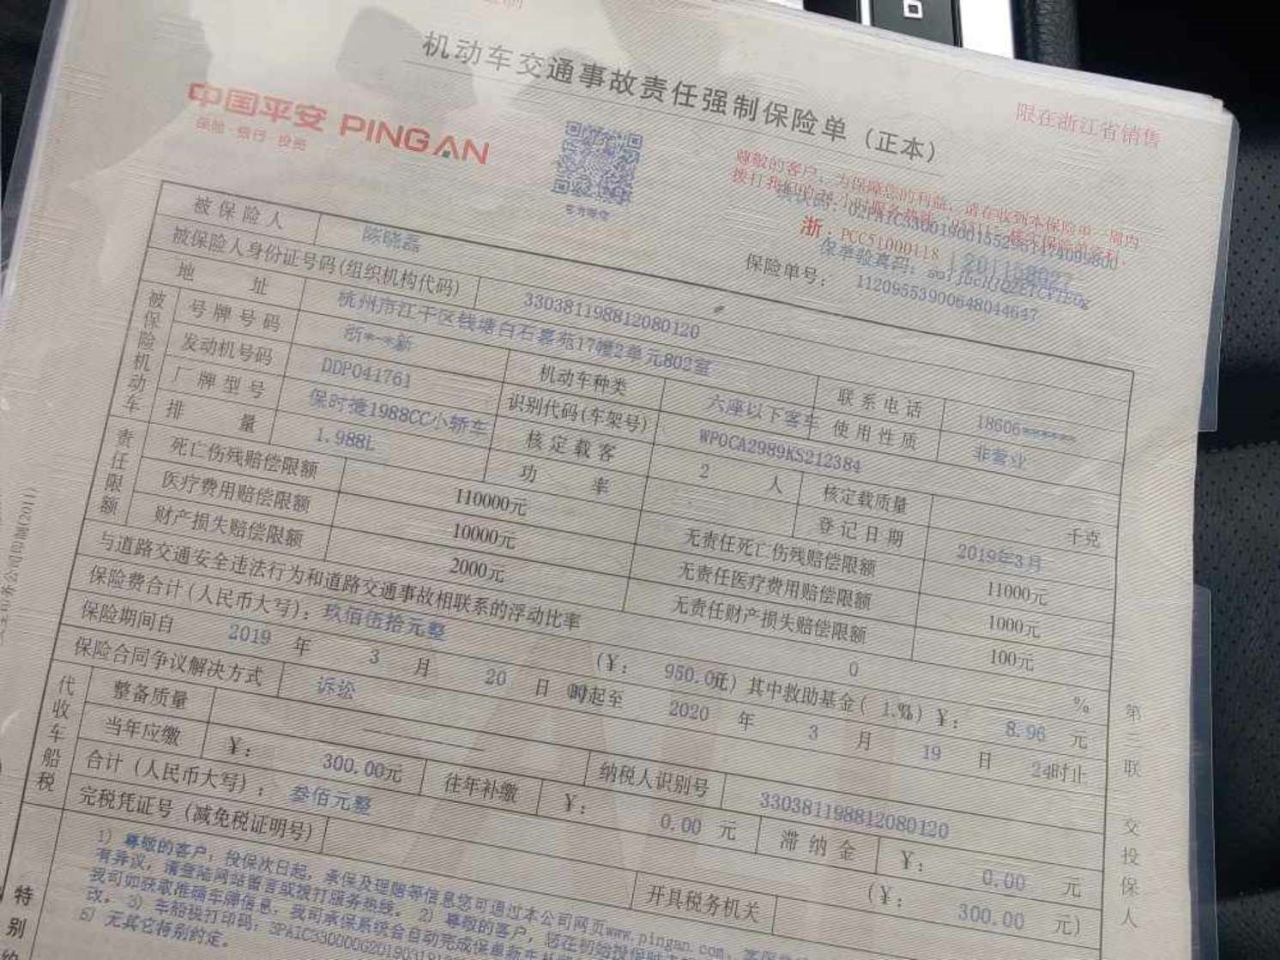 机动车交通事故责任强制保险单（正本）
限在浙江省销售
中国平安 PINGAN
保险·银行·投资
尊敬的客户：为保障您的利益，请在收到本保险单一周内
浙：PCC51000118
保险单号： 11209553900648044647
被保险人 陈晓磊
被保险人身份证号码(组织机构代码) 330381198812080120
地 址 杭州市江干区钱塘白石嘉苑17幢2单元802室 联系电话 18606******
被保险机动车
号牌号码 浙*-*新 机动车种类 六座以下客车 使用性质 非营业
发动机号码 DDP041761 识别代码(车架号) WP0CA2989KS212384
厂牌型号 保时捷1988CC小轿车 核定载客 2 人 核定载质量 千克
排 量 1.988L 功 率 登记日期 2019年3月
责任限额
死亡伤残赔偿限额 110000元 无责任死亡伤残赔偿限额 11000元
医疗费用赔偿限额 10000元 无责任医疗费用赔偿限额 1000元
财产损失赔偿限额 2000元 无责任财产损失赔偿限额 100元
与道路交通安全违法行为和道路交通事故相联系的浮动比率 0 %
保险费合计(人民币大写)：玖佰伍拾元整 (￥： 950.0元) 其中救助基金( 1.%) ￥： 8.96 元
保险期间自 2019 年 3 月 20 日 0时起至 2020 年 3 月 19 日 24时止
保险合同争议解决方式 诉讼
代收车船税
整备质量 纳税人识别号 330381198812080120
当年应缴 ￥： 300.00元 往年补缴 ￥： 0.00 元 滞纳金 ￥： 0.00 元
合计（人民币大写）：叁佰元整 (￥： 300.00 元)
完税凭证号（减免税证明号） 开具税务机关
特别约
1) 尊敬的客户：投保次日起，承保及理赔等信息您可通过本公司网页www.pingan.com、
有异议，请登陆网站留言或拨打服务热线。 2) 尊敬的客户，您在初始投保时
我司如获取准确车牌信息，我司承保系统会自动完成保单新车
改。 3) 车船税打印码：3PAIC330000G2019031
5) 无其它特别约定。
第三联 交投保人